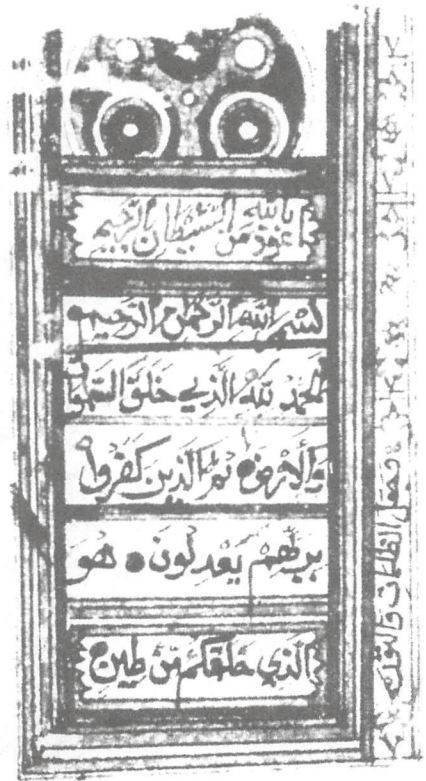 أعوذ بالله من الشيطان الرجيم
بسم الله الرحمن الرحيم
الحمد لله الذي خلق السموات
والأرض ثم الذين كفروا
بربهم يعدلون هو
الذي خلقكم من طين
وجعل الظلمات والنور